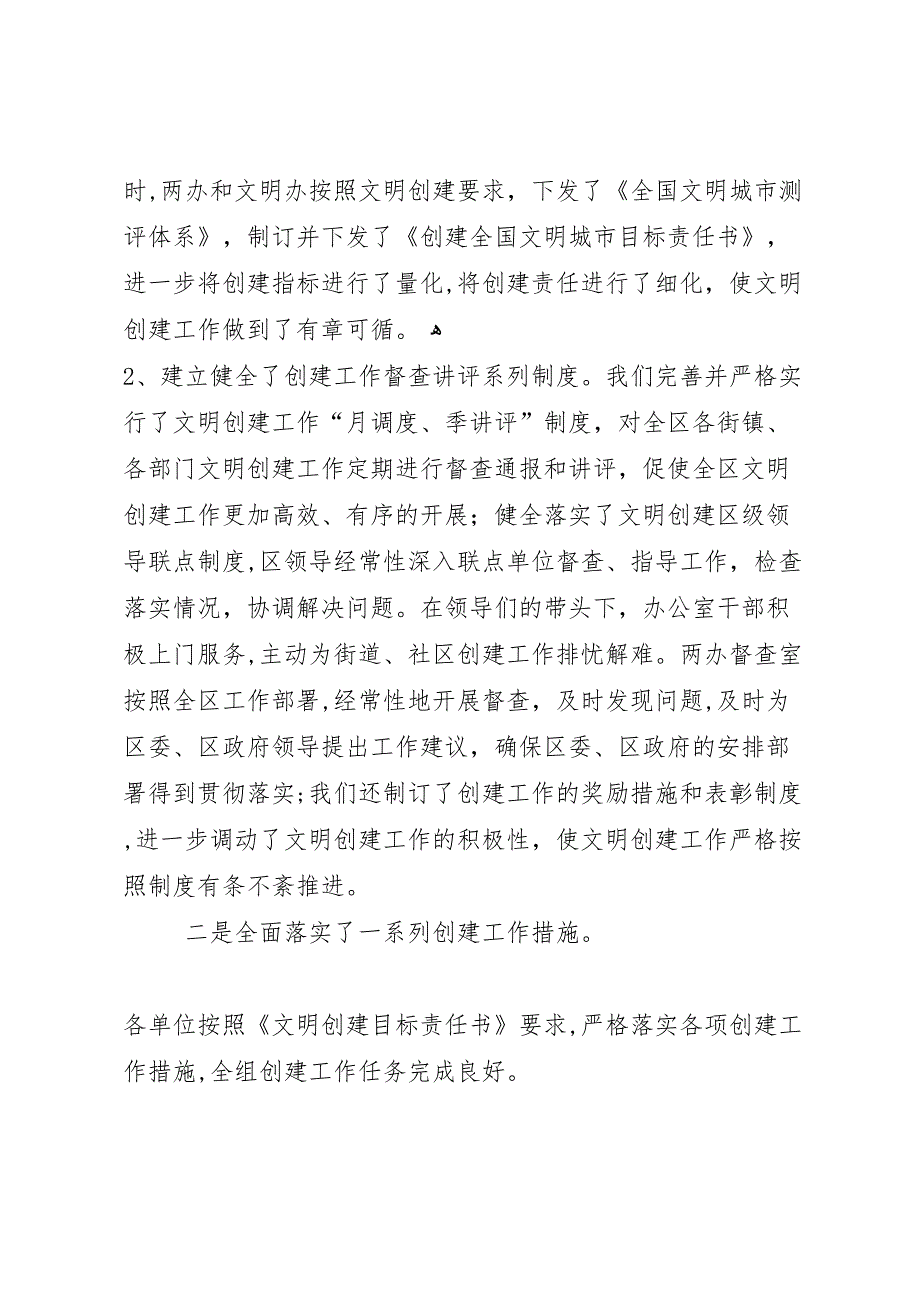 时,两办和文明办按照文明创建要求，下发了《全国文明城市测
评体系》，制订并下发了《创建全国文明城市目标责任书》，
进一步将创建指标进行了量化,将创建责任进行了细化，使文明
创建工作做到了有章可循。 ﻫ
2、建立健全了创建工作督查讲评系列制度。我们完善并严格实
行了文明创建工作“月调度、季讲评”制度，对全区各街镇、
各部门文明创建工作定期进行督查通报和讲评，促使全区文明
创建工作更加高效、有序的开展；健全落实了文明创建区级领
导联点制度,区领导经常性深入联点单位督查、指导工作，检查
落实情况，协调解决问题。在领导们的带头下，办公室干部积
极上门服务,主动为街道、社区创建工作排忧解难。两办督查室
按照全区工作部署,经常性地开展督查，及时发现问题,及时为
区委、区政府领导提出工作建议，确保区委、区政府的安排部
署得到贯彻落实;我们还制订了创建工作的奖励措施和表彰制度
,进一步调动了文明创建工作的积极性，使文明创建工作严格按
照制度有条不紊推进。
二是全面落实了一系列创建工作措施。
各单位按照《文明创建目标责任书》要求,严格落实各项创建工
作措施,全组创建工作任务完成良好。